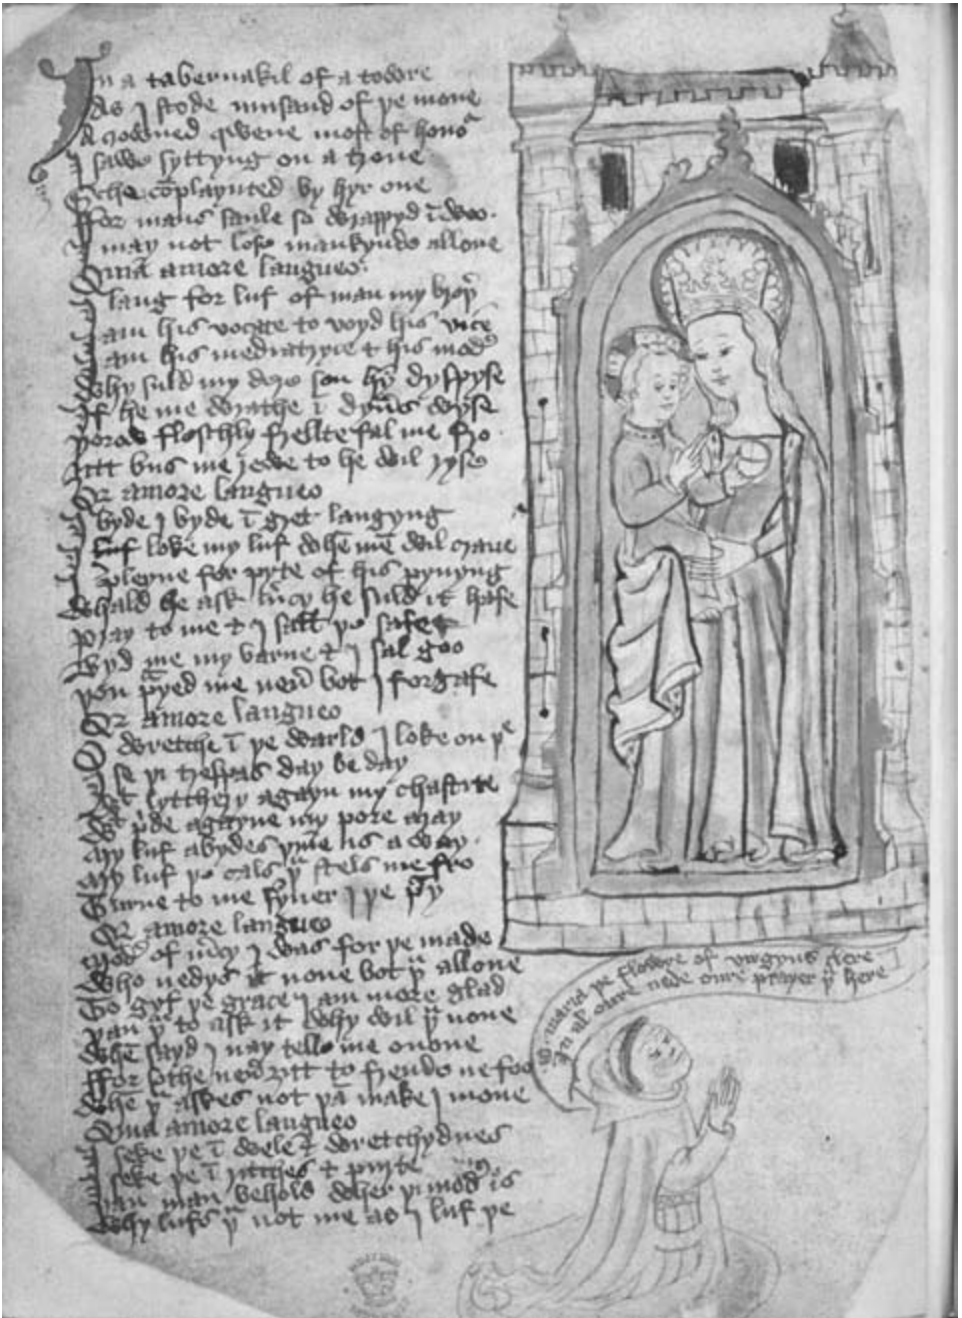 In a tabernakil of a towre
As I stode musand of þe mone
A crowned qwene most of hono
I sawe syttyng on a trone
Sche cōplaynted by hyr one
ffor mans saule so wrappyd ī wo
I may not lefe mankynde allone
Quia amore langueo
I lang for luf of man my broþ
I am his vocate to voyd his vice
I am his mediatryce & his mod
Why suld my dere son hȳ dyspyse
If he me wrathe ī dyūs wyse
þorow fleschly freelte fal me fro
ȝitt bus me rewe to he wil ryse
Qr amore langueo
I byde I byde ī gret langyng
I luf loke my luf whē mē wil craue
I pleyne for pyte of his pynyng
Whald he ask mcy he suld it hafe
Pray to me & I sall þe safe
Byd me my barne & I sal goo
þou prayed me neu bot I forgafe
Qr amore langueo
O wretche ī þe warld I loke on þe
I se þi trespas day be day
Wt lytchery agayn my chastite
Wt pde agayne my pore aray
My luf abydes þine is away
My luf þe cals þu stels me fro
Turne to me synner I þe pray
Qr amore langueo
Mod of mcy I was for þe made
Who nedys it none bot þu allone
To gyf þe grace I am more glad
þan þu to ask it why wil þu none
Whē sayd I nay telle me onone
ffor sothe neu ȝitt to frende ne foo
Whē þu askes not þā make I mone
Quia amore langueo
I seke þe ī wele & wretchydnes
I seke þe ī ritches & pūte
þan man behold wher þi mod is
Why lufs þu not me as I luf þe
O maria þe flowre of virgyns clere
In al oure nede oure prayer þu here